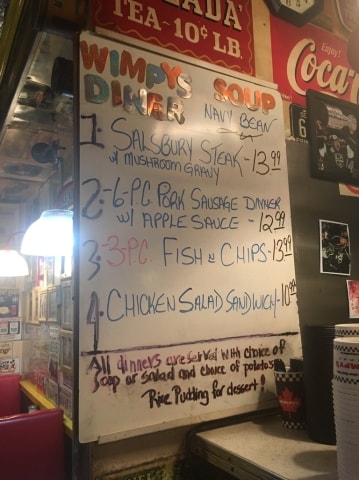 ADA'
TEA-10¢ LB.
Enjoy!
Coca
WIMPYS SOUP
DINER NAVY BEAN
1. SALSBURY STEAK - 13.99
w/ MUSHROOM GRAVY
2. -6-P.C. PORK SAUSAGE DINNER
w/ APPLE SAUCE - 12.99
3 -3 P.C. FISH N CHIPS - 13.99
4 CHICKEN SALAD SANDWICH - 10.99
All dinners are served with choice of
Soup or salad and choice of potatos
Rice Pudding for dessert!